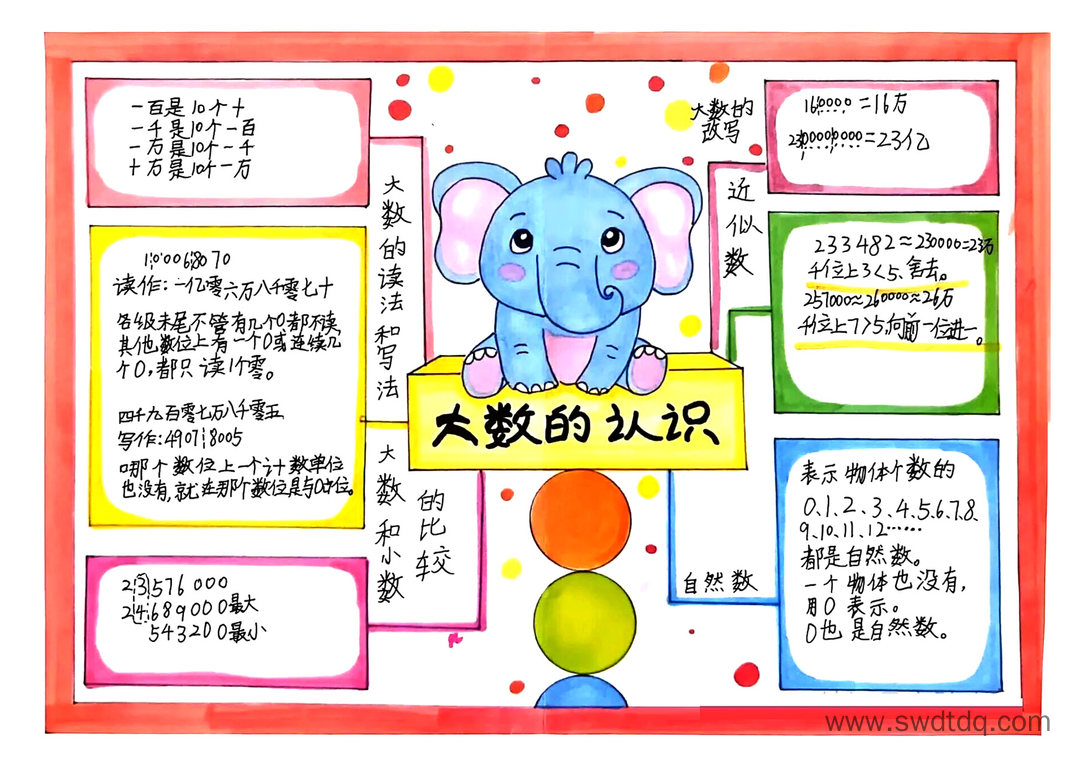 大数的认识
一百是10个十
一千是10个一百
一万是10个一千
十万是10个一万
大数的读法和写法
100068070
读作:一亿零六万八千零七十
各级末尾不管有几个0都不读
其他数位上有一个0或连续几
个0,都只读1个零。
四千九百零七万八千零五
写作:49078005
哪个数位上一个计数单位
也没有,就在那个数位
大数和小数
的比较
23576000
24689000最大
543200最小
大数的
改写
160000=16万
=23亿
近似数
233482≈230000=23万
千位上3<5、舍去。
257000≈260000≈26万
千位上7>5,向前一位进一。
自然数
表示物体个数的
0.1.2.3.4.5.6.7.8.
9.10.11.12……
都是自然数。
一个物体也没有,
用0表示。
0也是自然数。
www.swdtdq.com